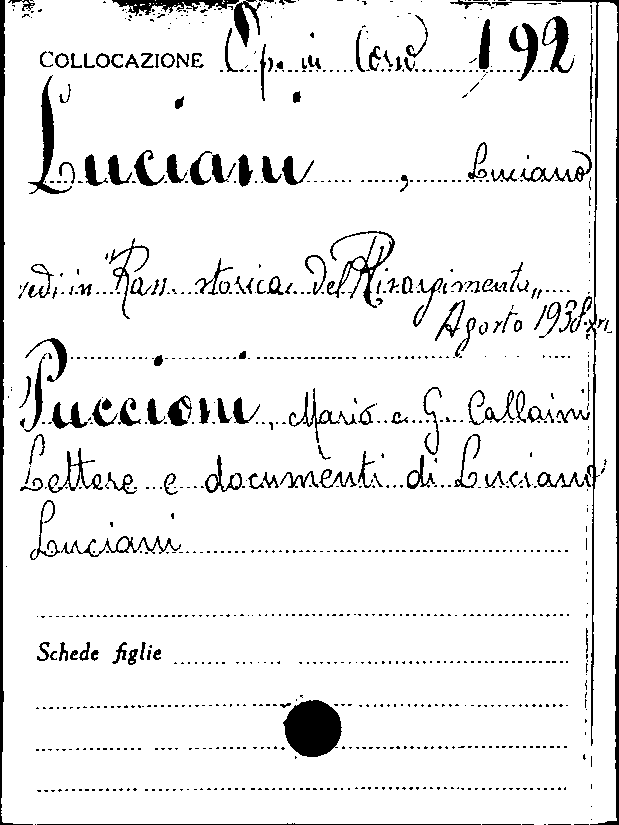 COLLOCAZIONE Op. in Corso 192
Luciani , Luciano
vedi in "Rass. storica del Risorgimento„
Agosto 1938-XVI
Puccioni, Mario e G. Callaini
Lettere e documenti di Luciano
Luciani
Schede figlie